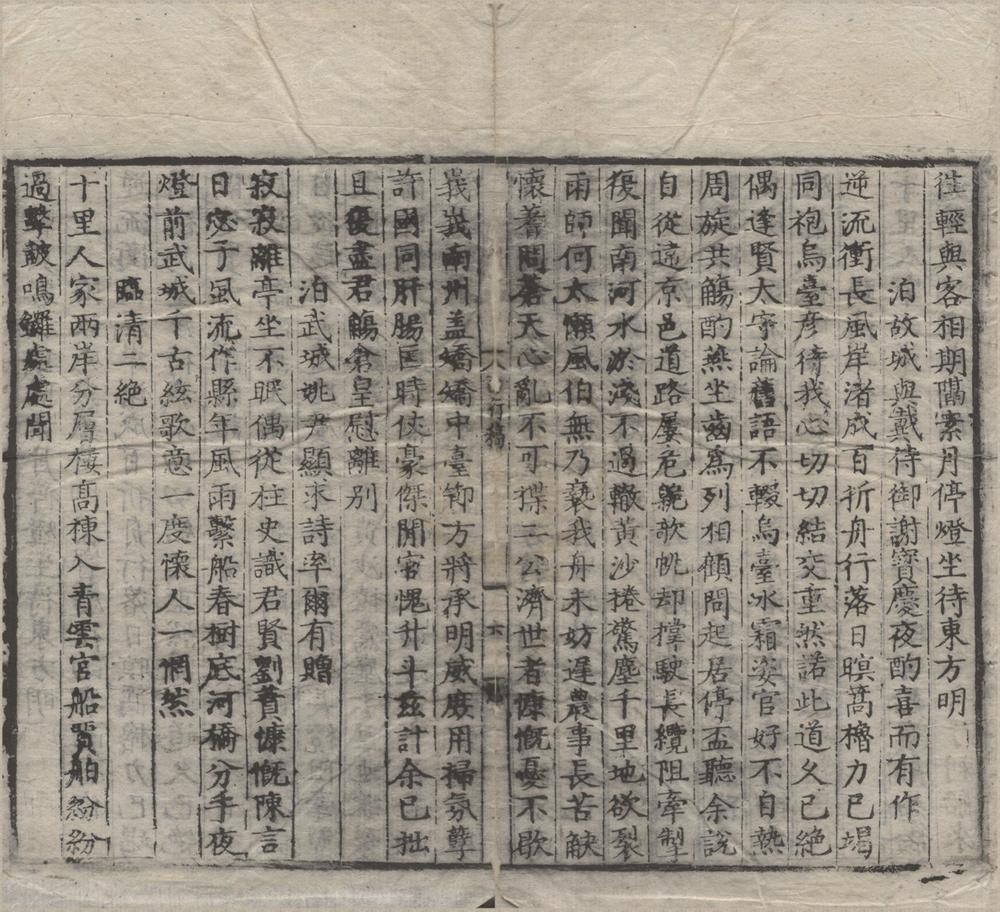 往輕與客相期隔素月停燈坐待東方明
泊故城與戴侍御謝寶慶夜酌喜而有作
逆流衝長風岸渚成百折舟行落日暝蒿櫓力已竭
同袍烏臺彥待我心切切結交重然諾此道久已絕
偶逢賢太守論舊語不輟烏臺冰霜姿官好不自熱
周旋共觴酌燕坐齒為列相顧問起居停盃聽余說
自從違京邑道路屢危 歌帆却撑駛長纜阻牽掣
復聞南河水淤淺不過轍黃沙捲驚塵千里地欲裂
雨師何太懶風伯無乃褻我舟未妨遲農事長苦缺
懷著問蒼天心亂不可 三公濟世者慷慨憂不歇
峩峩南州盖矯矯中臺節方將承明威庶用掃氛孽
許國同肝腸匡時伏豪傑閒官愧升斗兹計余已拙
且復盡君觴倉皇慰離別
泊武城姚尹顯求詩率爾有贈
寂寂離亭坐不眠偶從柱史識君賢劉蕡慷慨陳言
日宓子風流作縣年風雨繫船春樹底河橋分手夜
燈前武城千古絃歌意一度懷人一惘然
臨清二絕
十里人家兩岸分層樓高棟入青雲官船賈舶紛紛
過擊鼓鳴鑼處處聞
行稿
一
六